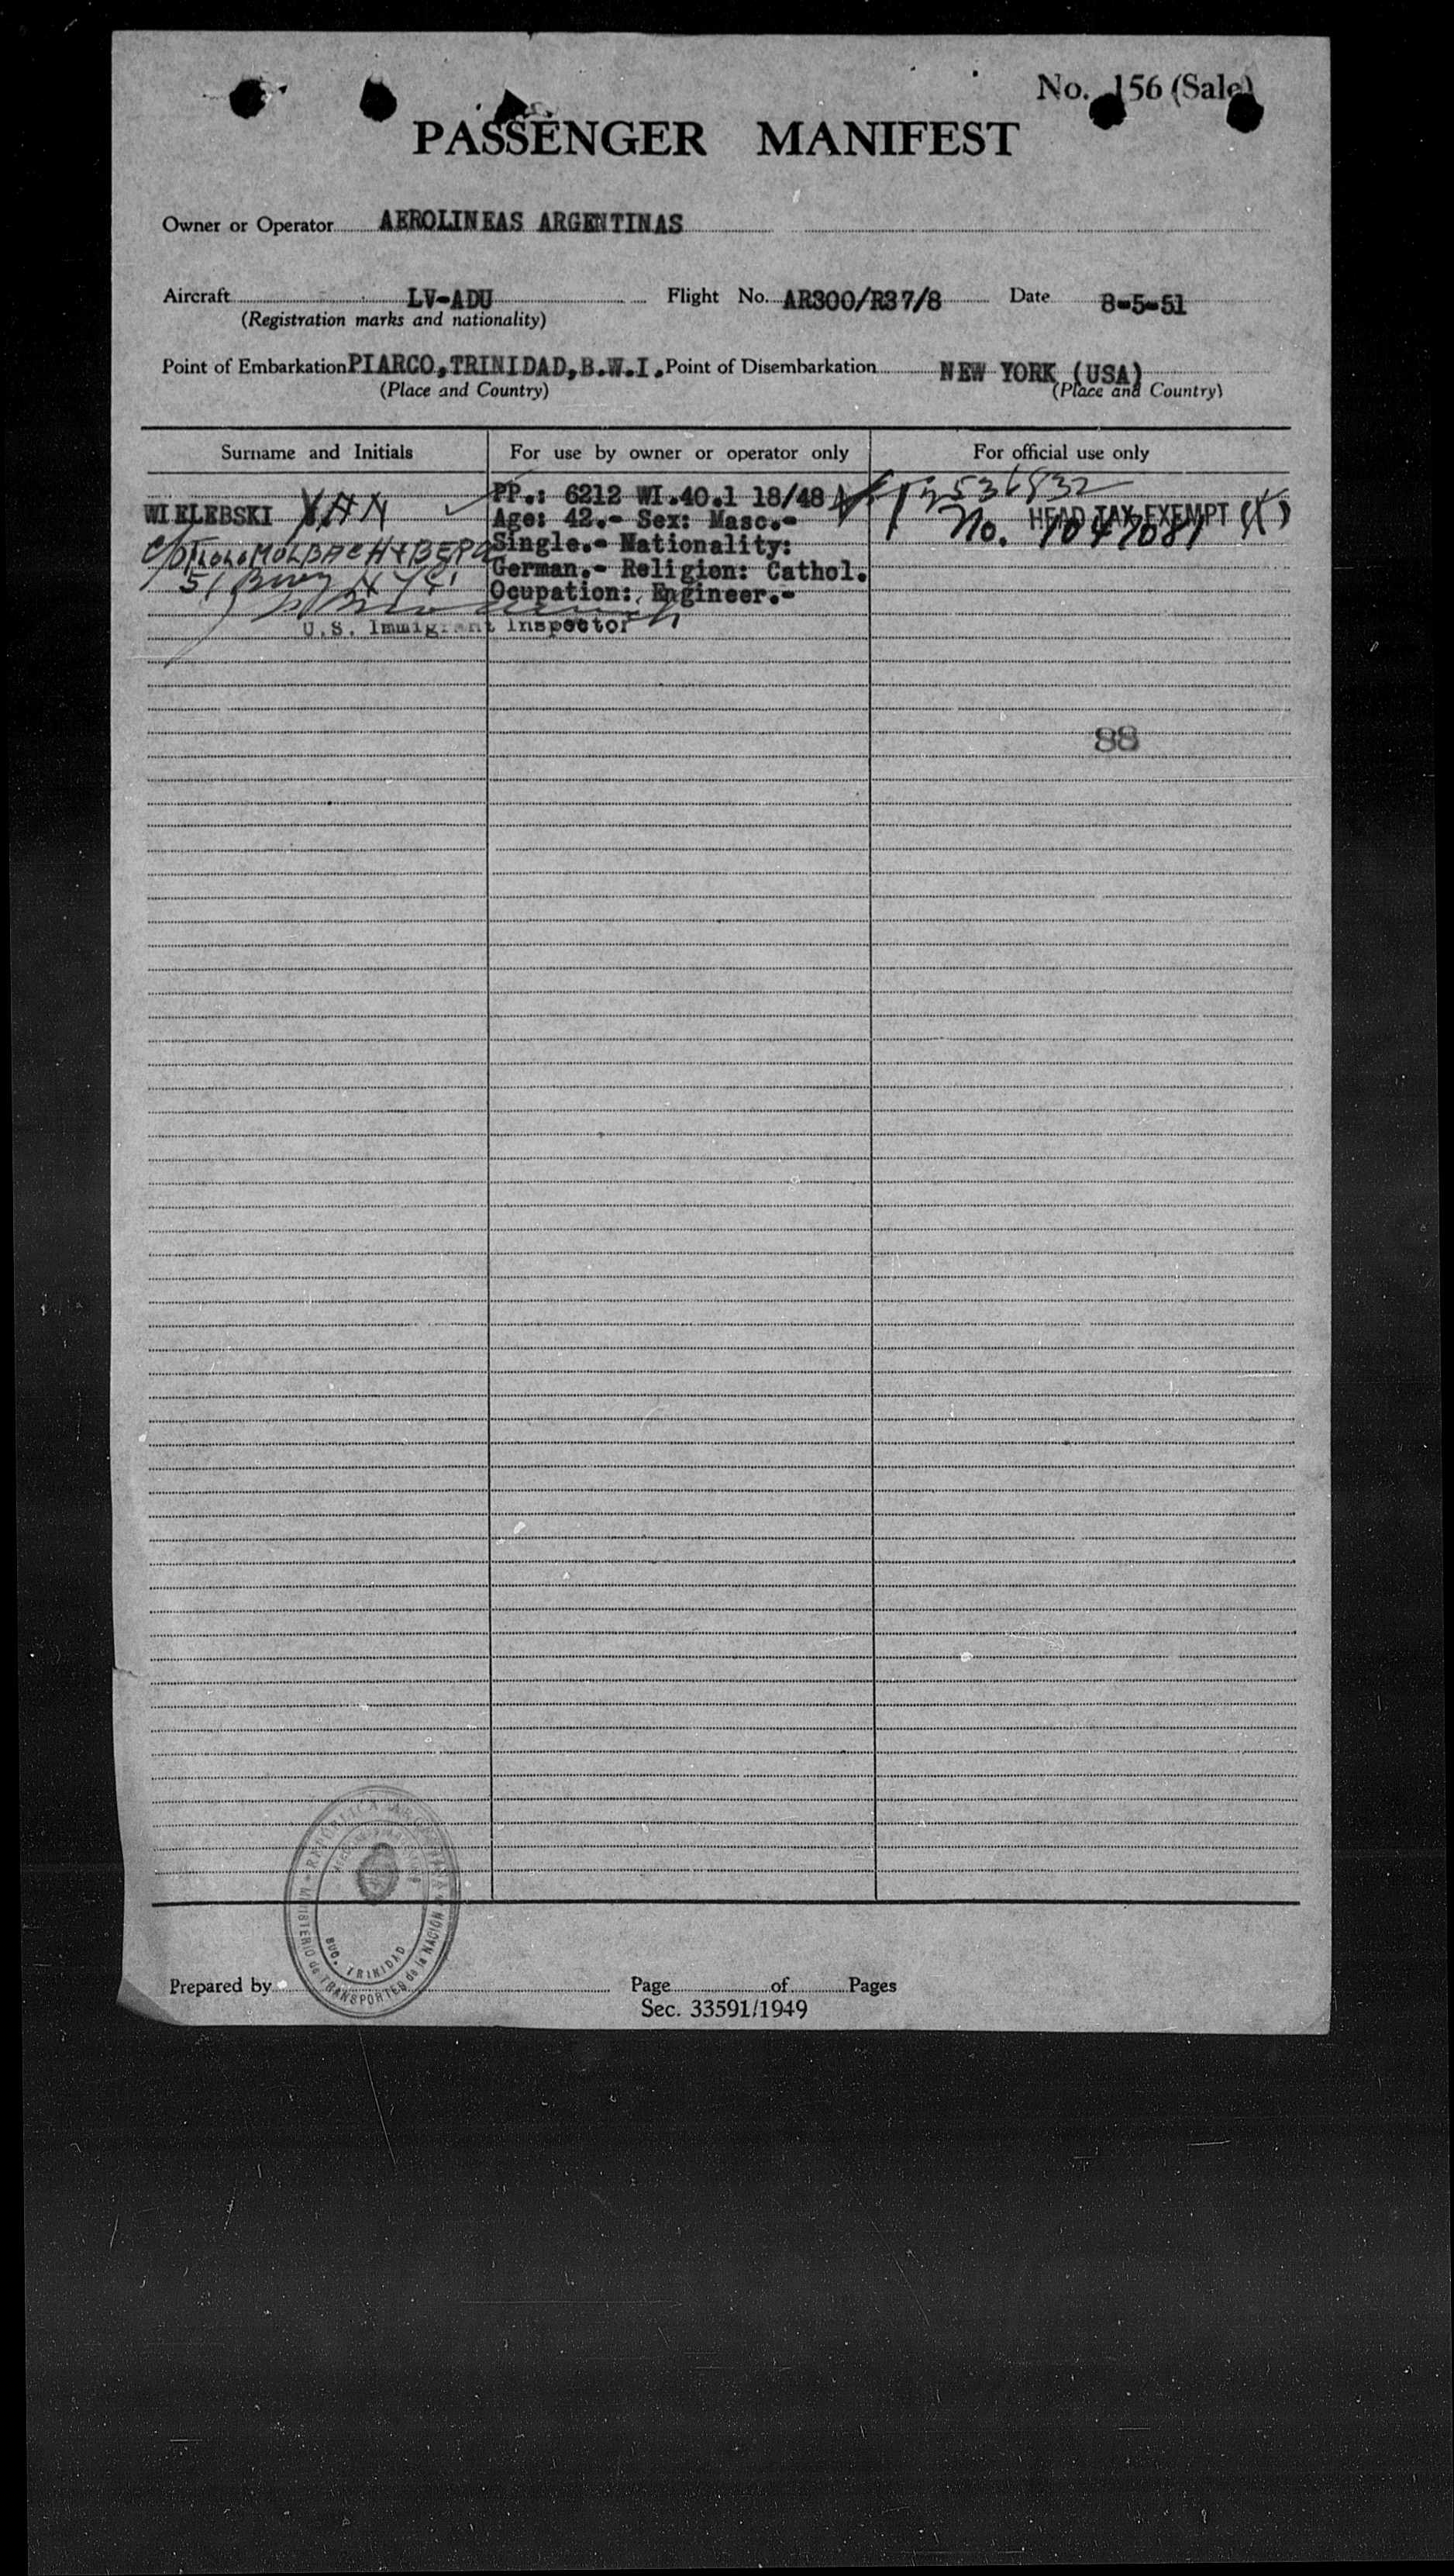 No. 156 (Sale)
PASSENGER MANIFEST
Owner or Operator AEROLINEAS ARGENTINAS
Aircraft LV-ADU Flight No. AR300/R37/8 Date 8-5-51
(Registration marks and nationality)
Point of Embarkation PIARCO,TRINIDAD,B.W.I. Point of Disembarkation NEW YORK (USA)
(Place and Country) (Place and Country)
Surname and Initials For use by owner or operator only For official use only
PP.: 6212 WI.40.1 18/48
WIELEBSKI Age: 42.- Sex: Masc.- HEAD TAX EXEMPT ( )
No.
c/o Single.- Nationality:
51 German.- Religion: Cathol.
Ocupation: Engineer.-
U.S. Immigrant Inspector
88
REPUBLICA ARGENTINA
MINISTERIO de TRANSPORTES de la NACION
SUC. TRINIDAD
Prepared by Page of Pages
Sec. 33591/1949